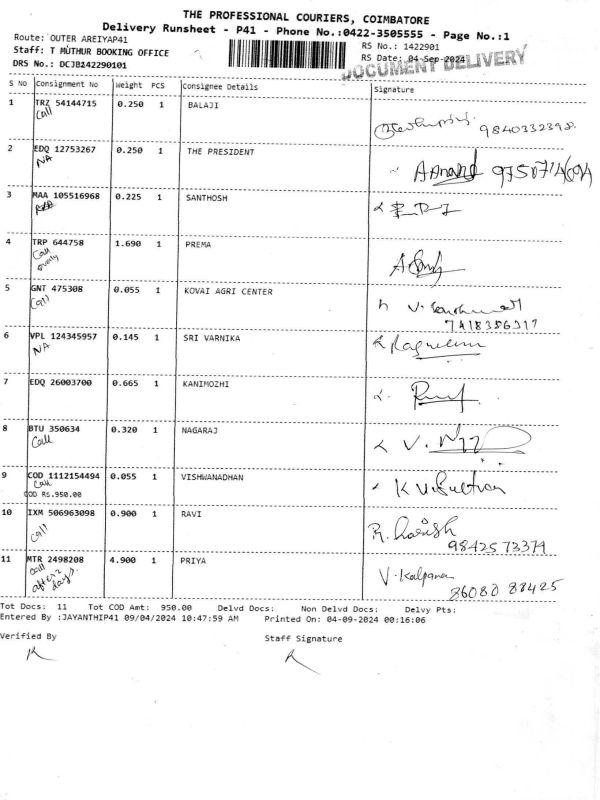 THE PROFESSIONAL COURIERS, COIMBATORE
Delivery Runsheet - P41 - Phone No.:0422-3505555 - Page No.:1
Route: OUTER AREIYAP41 RS No.: 1422901
Staff: T MUTHUR BOOKING OFFICE RS Date: 04-Sep-2024
DRS No.: DCJB142290101 DOCUMENT DELIVERY
S No Consignment No Weight PCS Consignee Details Signature
1 TRZ 54144715 0.250 1 BALAJI
Call 9840332398
2 EDQ 12753267 0.250 1 THE PRESIDENT
NA A Anand
3 MAA 105516968 0.225 1 SANTHOSH
4 TRP 644758 1.690 1 PREMA
Call
5 GNT 475308 0.055 1 KOVAI AGRI CENTER
Call 7418356317
6 VPL 124345957 0.145 1 SRI VARNIKA
NA
7 EDQ 26003700 0.665 1 KANIMOZHI
8 BTU 350634 0.320 1 NAGARAJ
Call
9 COD 1112154494 0.055 1 VISHWANADHAN
Call
COD RS.950.00
10 IXM 506963098 0.900 1 RAVI
Call R. Harish
9842573374
11 MTR 2498208 4.900 1 PRIYA
Call V. Kalpana
after 2 86080 88425
days.
Tot Docs: 11 Tot COD Amt: 950.00 Delvd Docs: Non Delvd Docs: Delvy Pts:
Entered By :JAYANTHIP41 09/04/2024 10:47:59 AM Printed On: 04-09-2024 00:16:06
Verified By Staff Signature